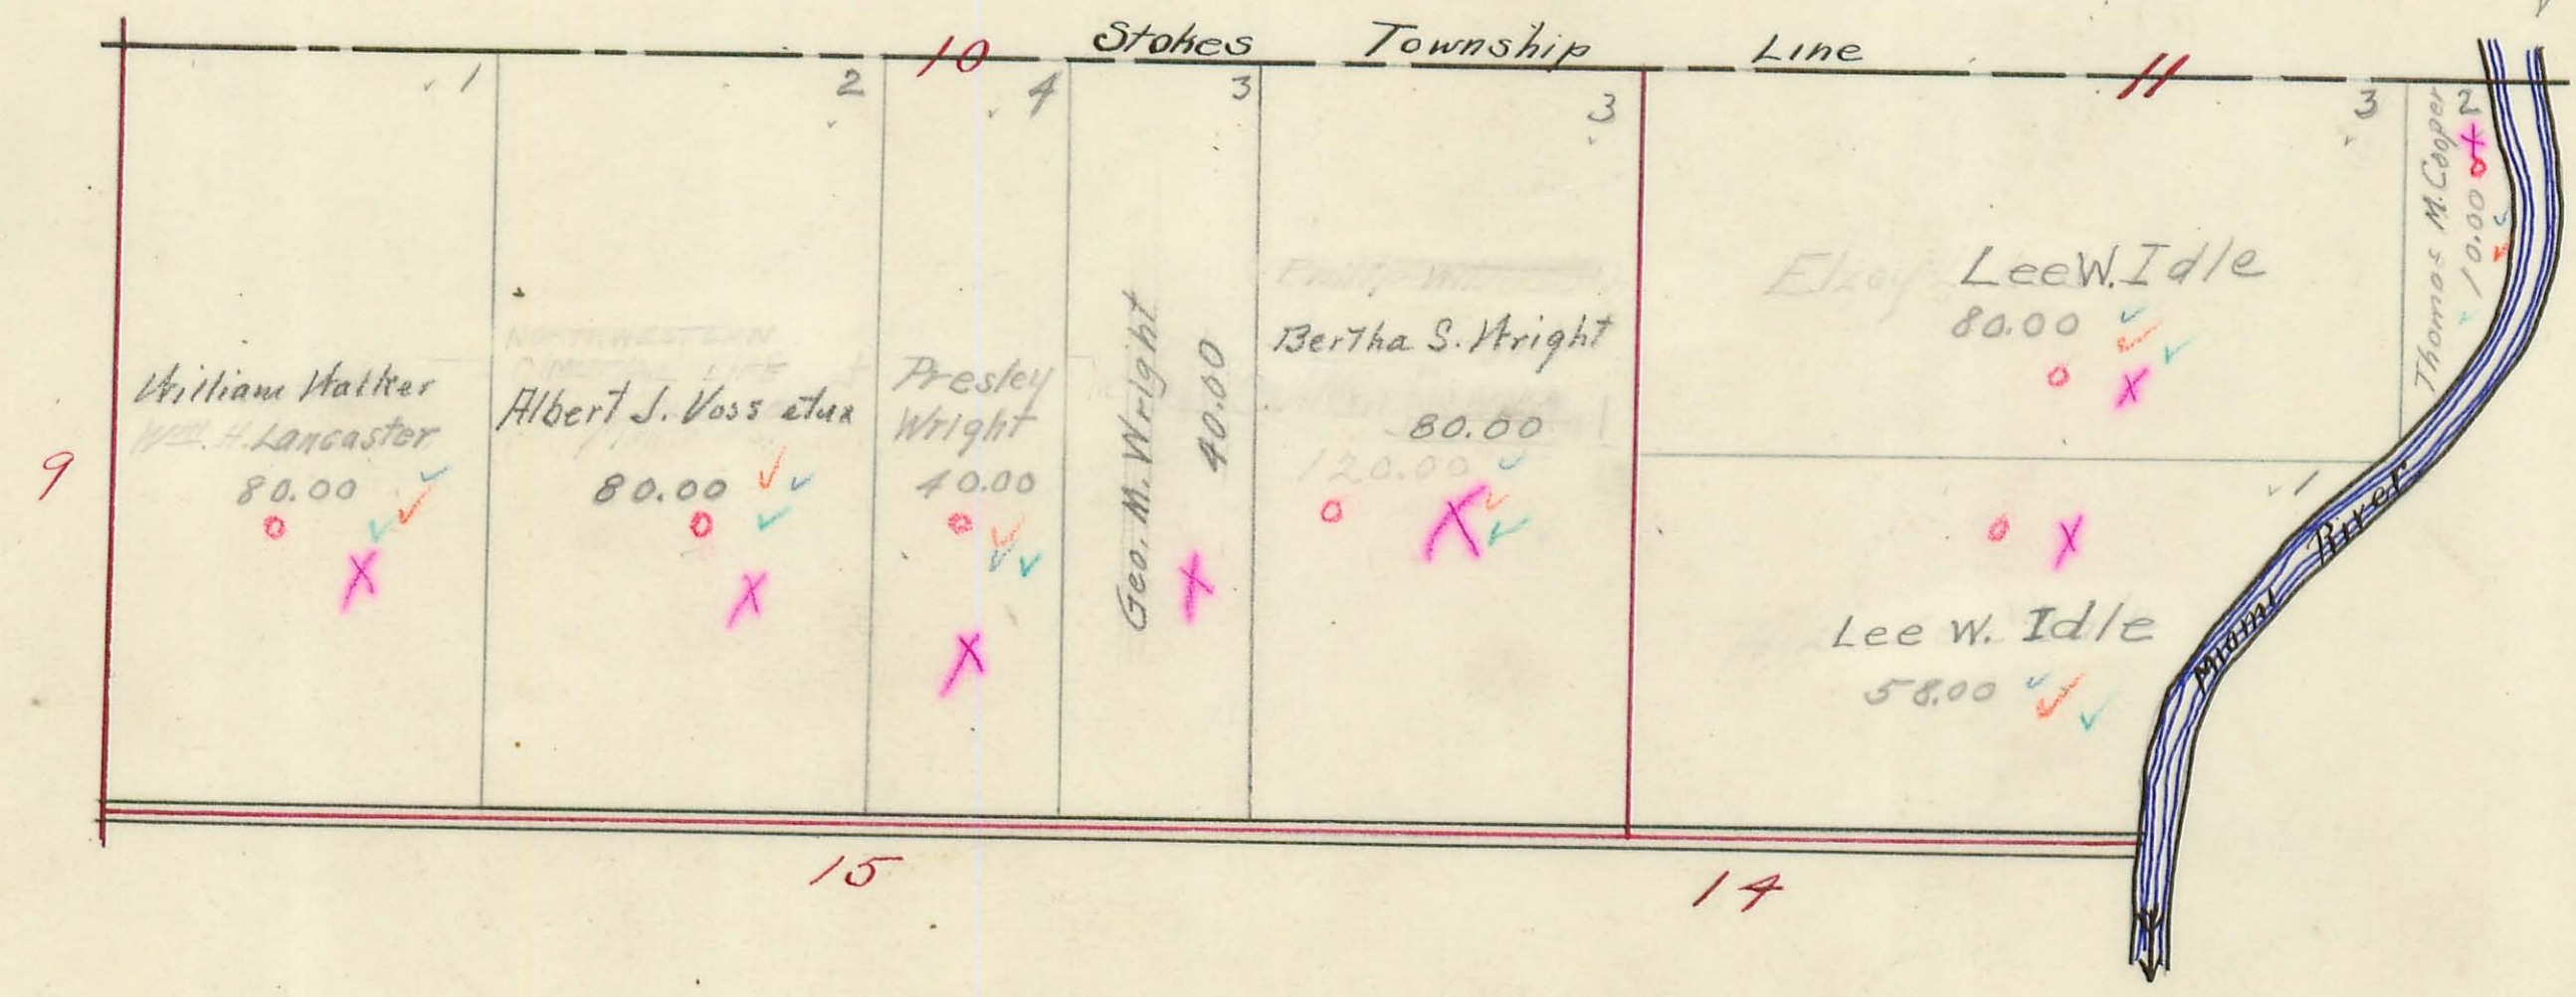 Stokes Township Line
10
11
1
2
4
3
3
3
2
9
William Walker
Wm. H. Lancaster
80.00
NORTHWESTERN
MUTUAL LIFE
Albert J. Voss etux
80.00
Presley
Wright
40.00
Geo. M. Wright
40.00
Bertha S. Wright
80.00
120.00
Elzey
Lee W. Idle
80.00
Thomas M. Cooper
10.00
1
Lee W. Idle
58.00
Miami River
15
14